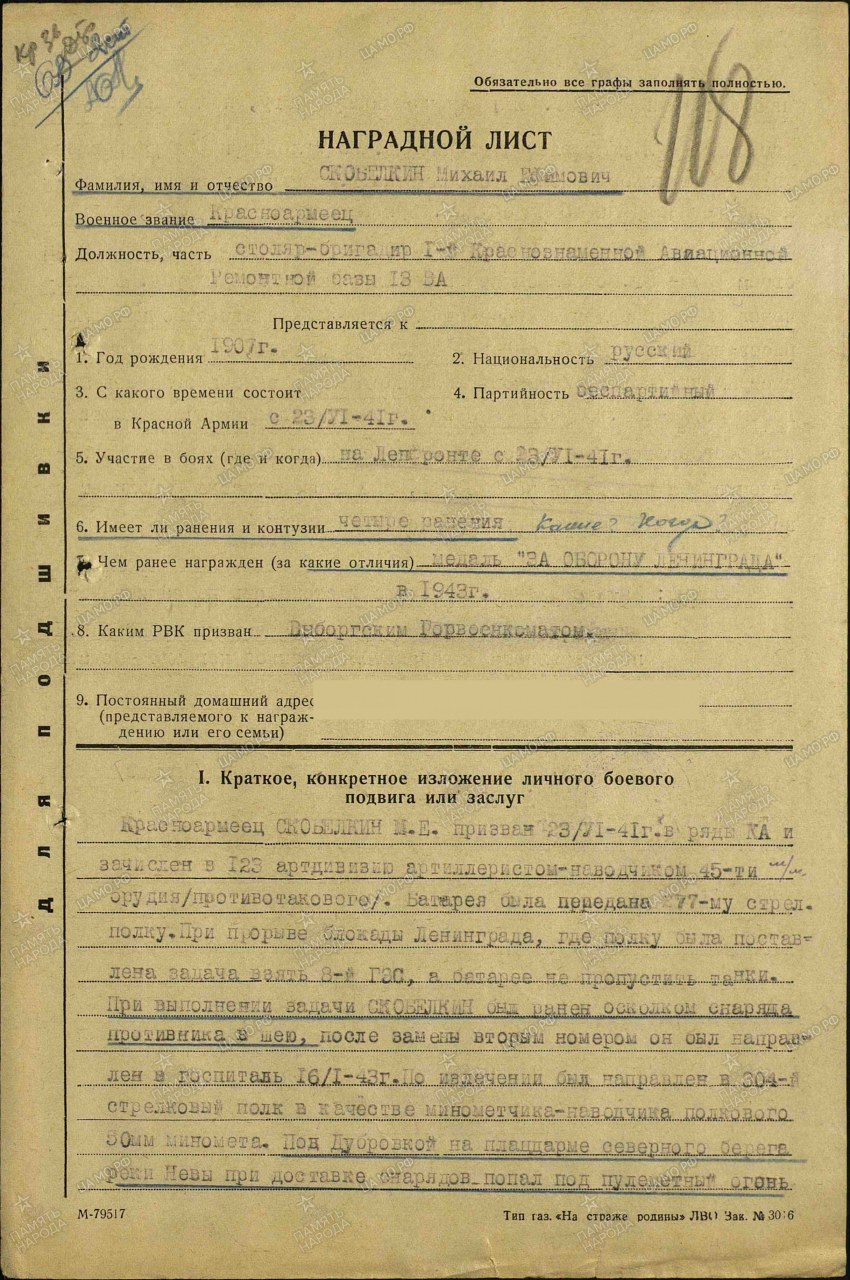 Обязательно все графы заполнять полностью.
168
НАГРАДНОЙ ЛИСТ
Фамилия, имя и отчество СКОБЕЛКИН Михаил Ефимович
Военное звание Красноармеец
Должность, часть столяр-бригадир I-й Краснознаменной Авиационной
Ремонтной базы 13 ВА
Представляется к
1. Год рождения 1907г.
2. Национальность русский
3. С какого времени состоит
в Красной Армии с 23/VI-41г.
4. Партийность беспартийный
5. Участие в боях (где и когда) на Ленфронте с 23/VI-41г.
6. Имеет ли ранения и контузии четыре ранения Какие? Когда?
7. Чем ранее награжден (за какие отличия) медаль "ЗА ОБОРОНУ ЛЕНИНГРАДА"
в 1943г.
8. Каким РВК призван Выборгским Горвоенкоматом.
9. Постоянный домашний адрес
(представляемого к награж-
дению или его семьи)
для подшивки
I. Краткое, конкретное изложение личного боевого
подвига или заслуг
Красноармеец СКОБЕЛКИН М.Е. призван 23/VI-41г. в ряды КА и
зачислен в 123 артдивизию артиллеристом-наводчиком 45-ти м/м
орудия/противотакового/. Батарея была передана 277-му стрел.
полку. При прорыве блокады Ленинграда, где полку была постав-
лена задача взять 8-й ГЭС, а батарее не пропустить танки.
При выполнении задачи СКОБЕЛКИН был ранен осколком снаряда
противника в шею, после замены вторым номером он был направ-
лен в госпиталь 16/I-43г. По излечении был направлен в 304-й
стрелковый полк в качестве минометчика-наводчика полкового
50мм миномета. Под Дубровкой на плацдарме северного берега
реки Невы при доставке снарядов попал под пулеметный огонь
М-79517
Тип газ. «На страже родины» ЛВО Зак. № 3036
ПАМЯТЬ НАРОДА
ЦАМО.РФ